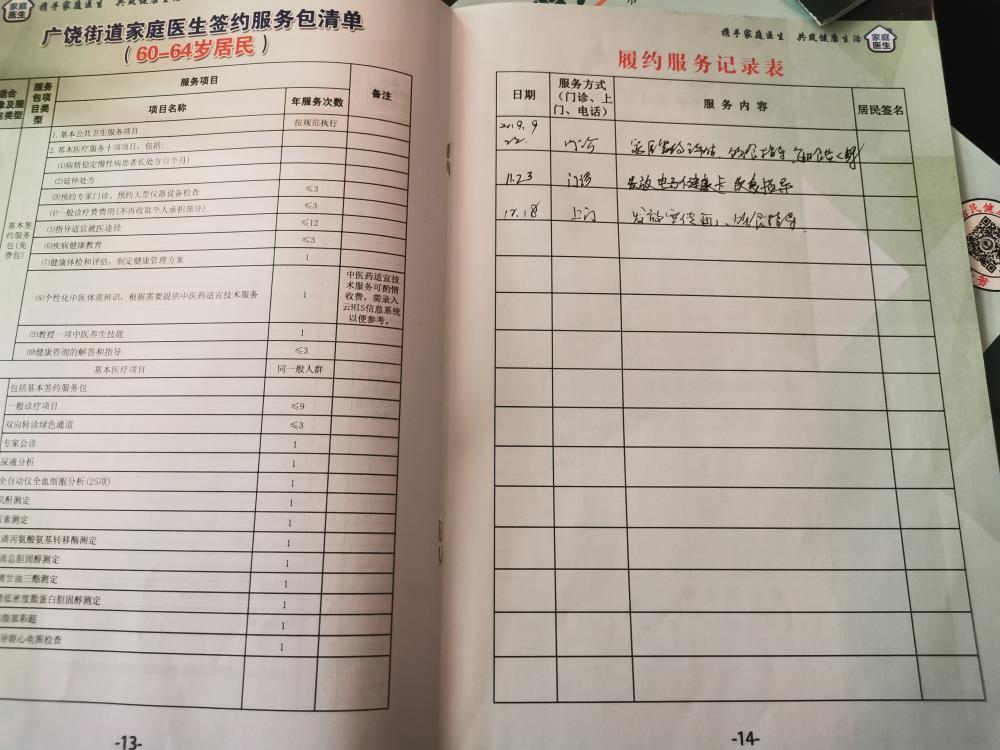 家庭医生
携手家庭医生 共筑健康生活
广饶街道家庭医生签约服务包清单
(60-64岁居民)
适合 服务包项目类型 服务项目 备注
项目名称 年服务次数
1.基本公共卫生服务项目 按规范执行
2.基本医疗服务十项项目,包括:
⑴病情稳定慢性病患者长处方(1个月)
⑵延伸处方
⑶预约专家门诊、预约大型仪器设备检查 ≤3
⑷一般诊疗费费用(不再收取个人承担部分) ≤3
⑸指导适宜就医途径 ≤12
⑹疾病健康教育 ≤3
⑺健康体检和评估,制定健康管理方案 1
基本签约服务包(免费包)
⑻个性化中医体质辨识,根据需要提供中医药适宜技术服务 1 中医药适宜技术服务可酌情收费,需录入云HIS信息系统以便参考。
⑼教授一项中医养生技能 1
⑽健康咨询的解答和指导 ≤3
基本医疗项目 同一般人群
包括基本签约服务包
一般诊疗项目 ≤9
双向转诊绿色通道 ≤3
专家会诊 1
尿液分析 1
全自动仪全血细胞分析(25项) 1
肌酐测定 1
素测定 1
清丙氨酸氨基转移酶测定 1
清总胆固醇测定 1
清甘油三酯测定 1
低密度脂蛋白胆固醇测定 1
腹部彩超 1
导联心电图检查 1
-13-
携手家庭医生 共筑健康生活
家庭医生
履约服务记录表
日期 服务方式(门诊、上门、电话) 服务内容 居民签名
2019.9
22. 门诊
11.23 门诊 发放电子健康卡 饮食指导
12.18 上门 发放宣传面
-14-